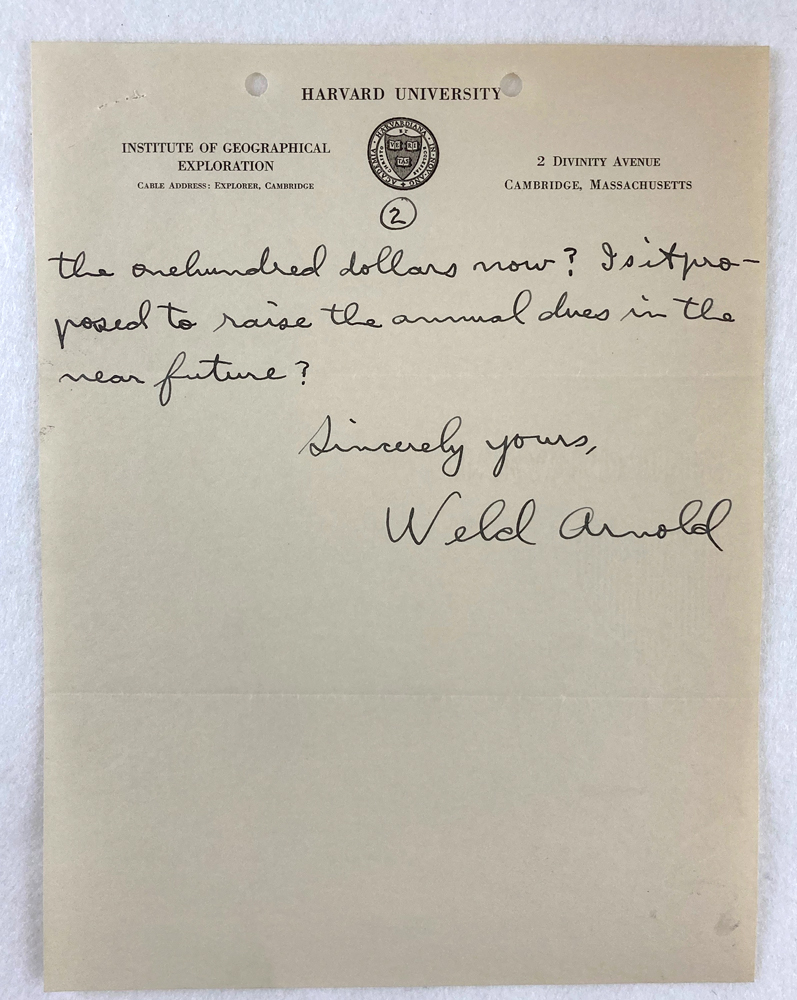 HARVARD UNIVERSITY
INSTITUTE OF GEOGRAPHICAL
EXPLORATION
CABLE ADDRESS: EXPLORER, CAMBRIDGE
VE RI
TAS
2 DIVINITY AVENUE
CAMBRIDGE, MASSACHUSETTS
2
the onehundred dollars now? Is it pro-
posed to raise the annual dues in the
near future?
Sincerely yours,
Weld Arnold